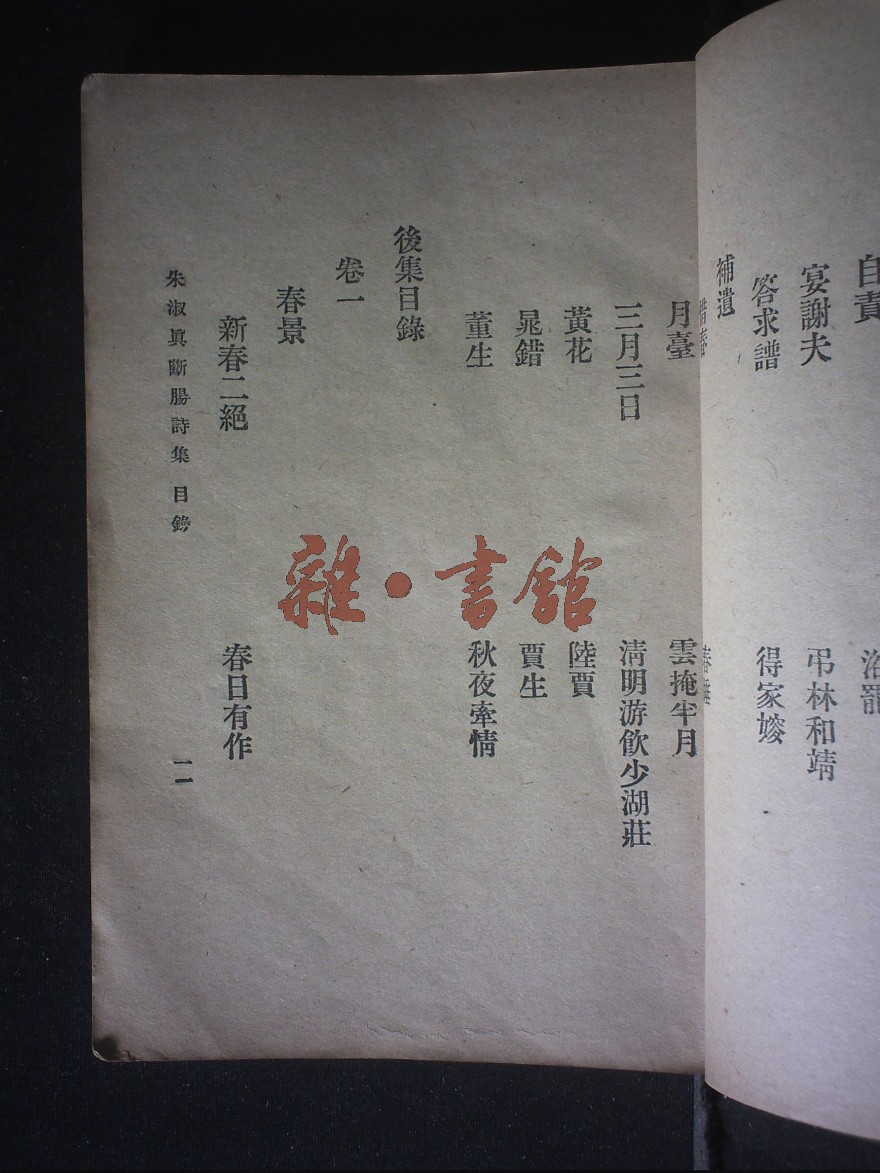 自責
宴謝夫
弔林和靖
答求譜
得家嫂
補遺
月臺
雲掩半月
三月三日
淸明游飮少湖莊
黃花
陸賈
晁錯
賈生
董生
秋夜牽情
後集目錄
卷一
春景
新春二絕
春日有作
朱淑眞斷腸詩集 目錄
二
雜•書館